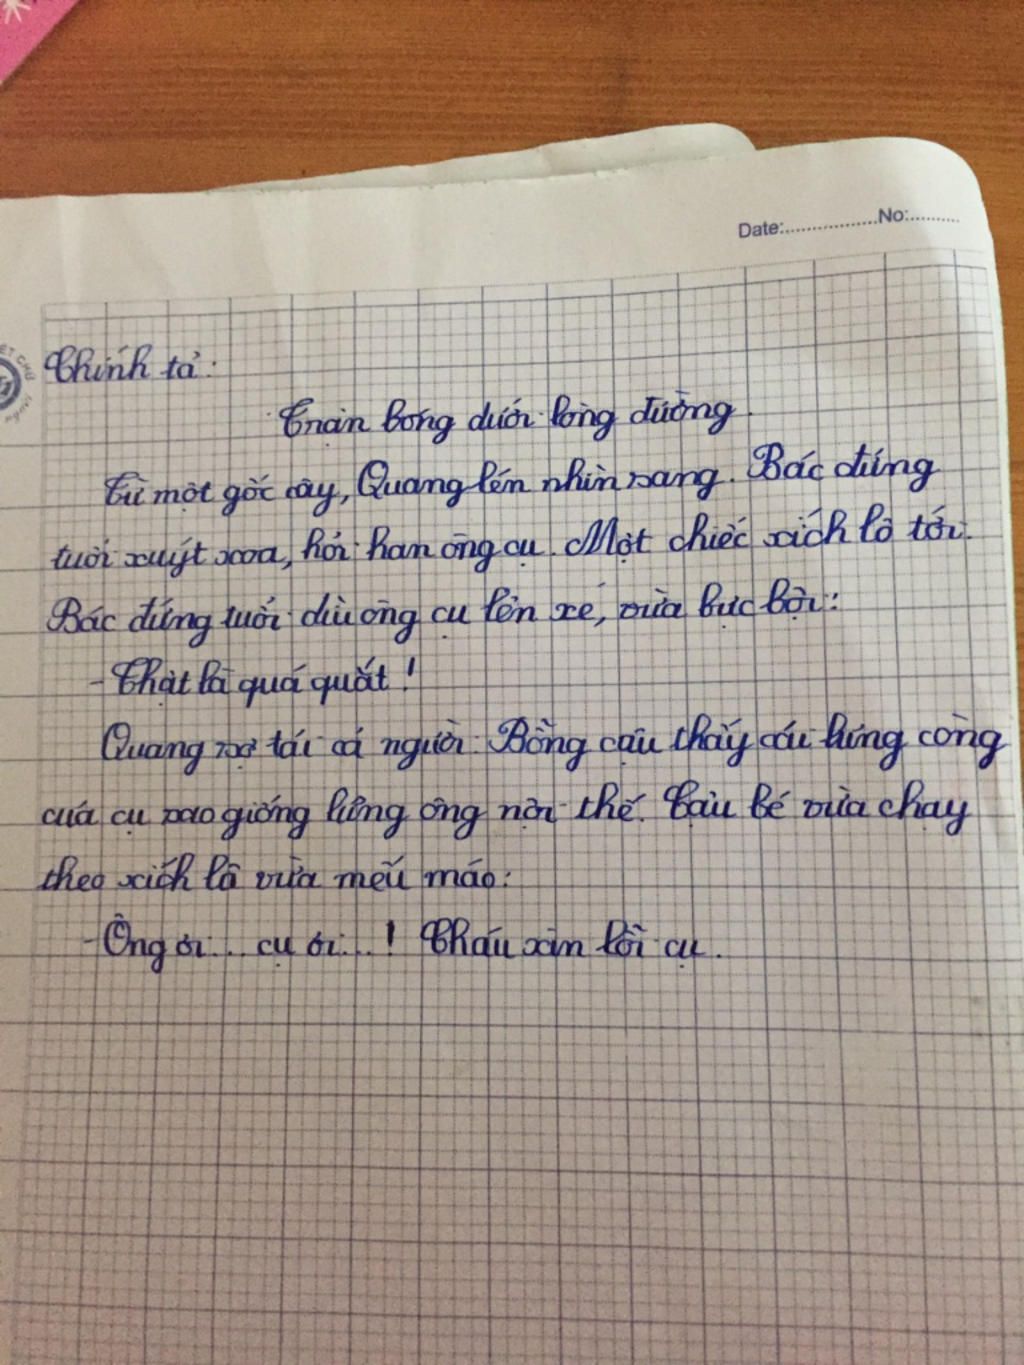 Date:..................No:..........
Chính tả:
Trận bóng dưới lòng đường.
Từ một gốc cây, Quang lén nhìn sang. Bác đứng
tuổi xuýt xoa, hỏi han ông cụ. Một chiếc xích lô tới.
Bác đứng tuổi dìu ông cụ lên xe, vừa bực bội:
- Thật là quá quắt!
Quang sợ tái cả người. Bỗng cậu thấy cái lưng còng
của cụ sao giống lưng ông nội thế. Cậu bé vừa chạy
theo xích lô vừa mếu máo:
- Ông ơi... cụ ơi...! Cháu xin lỗi cụ.